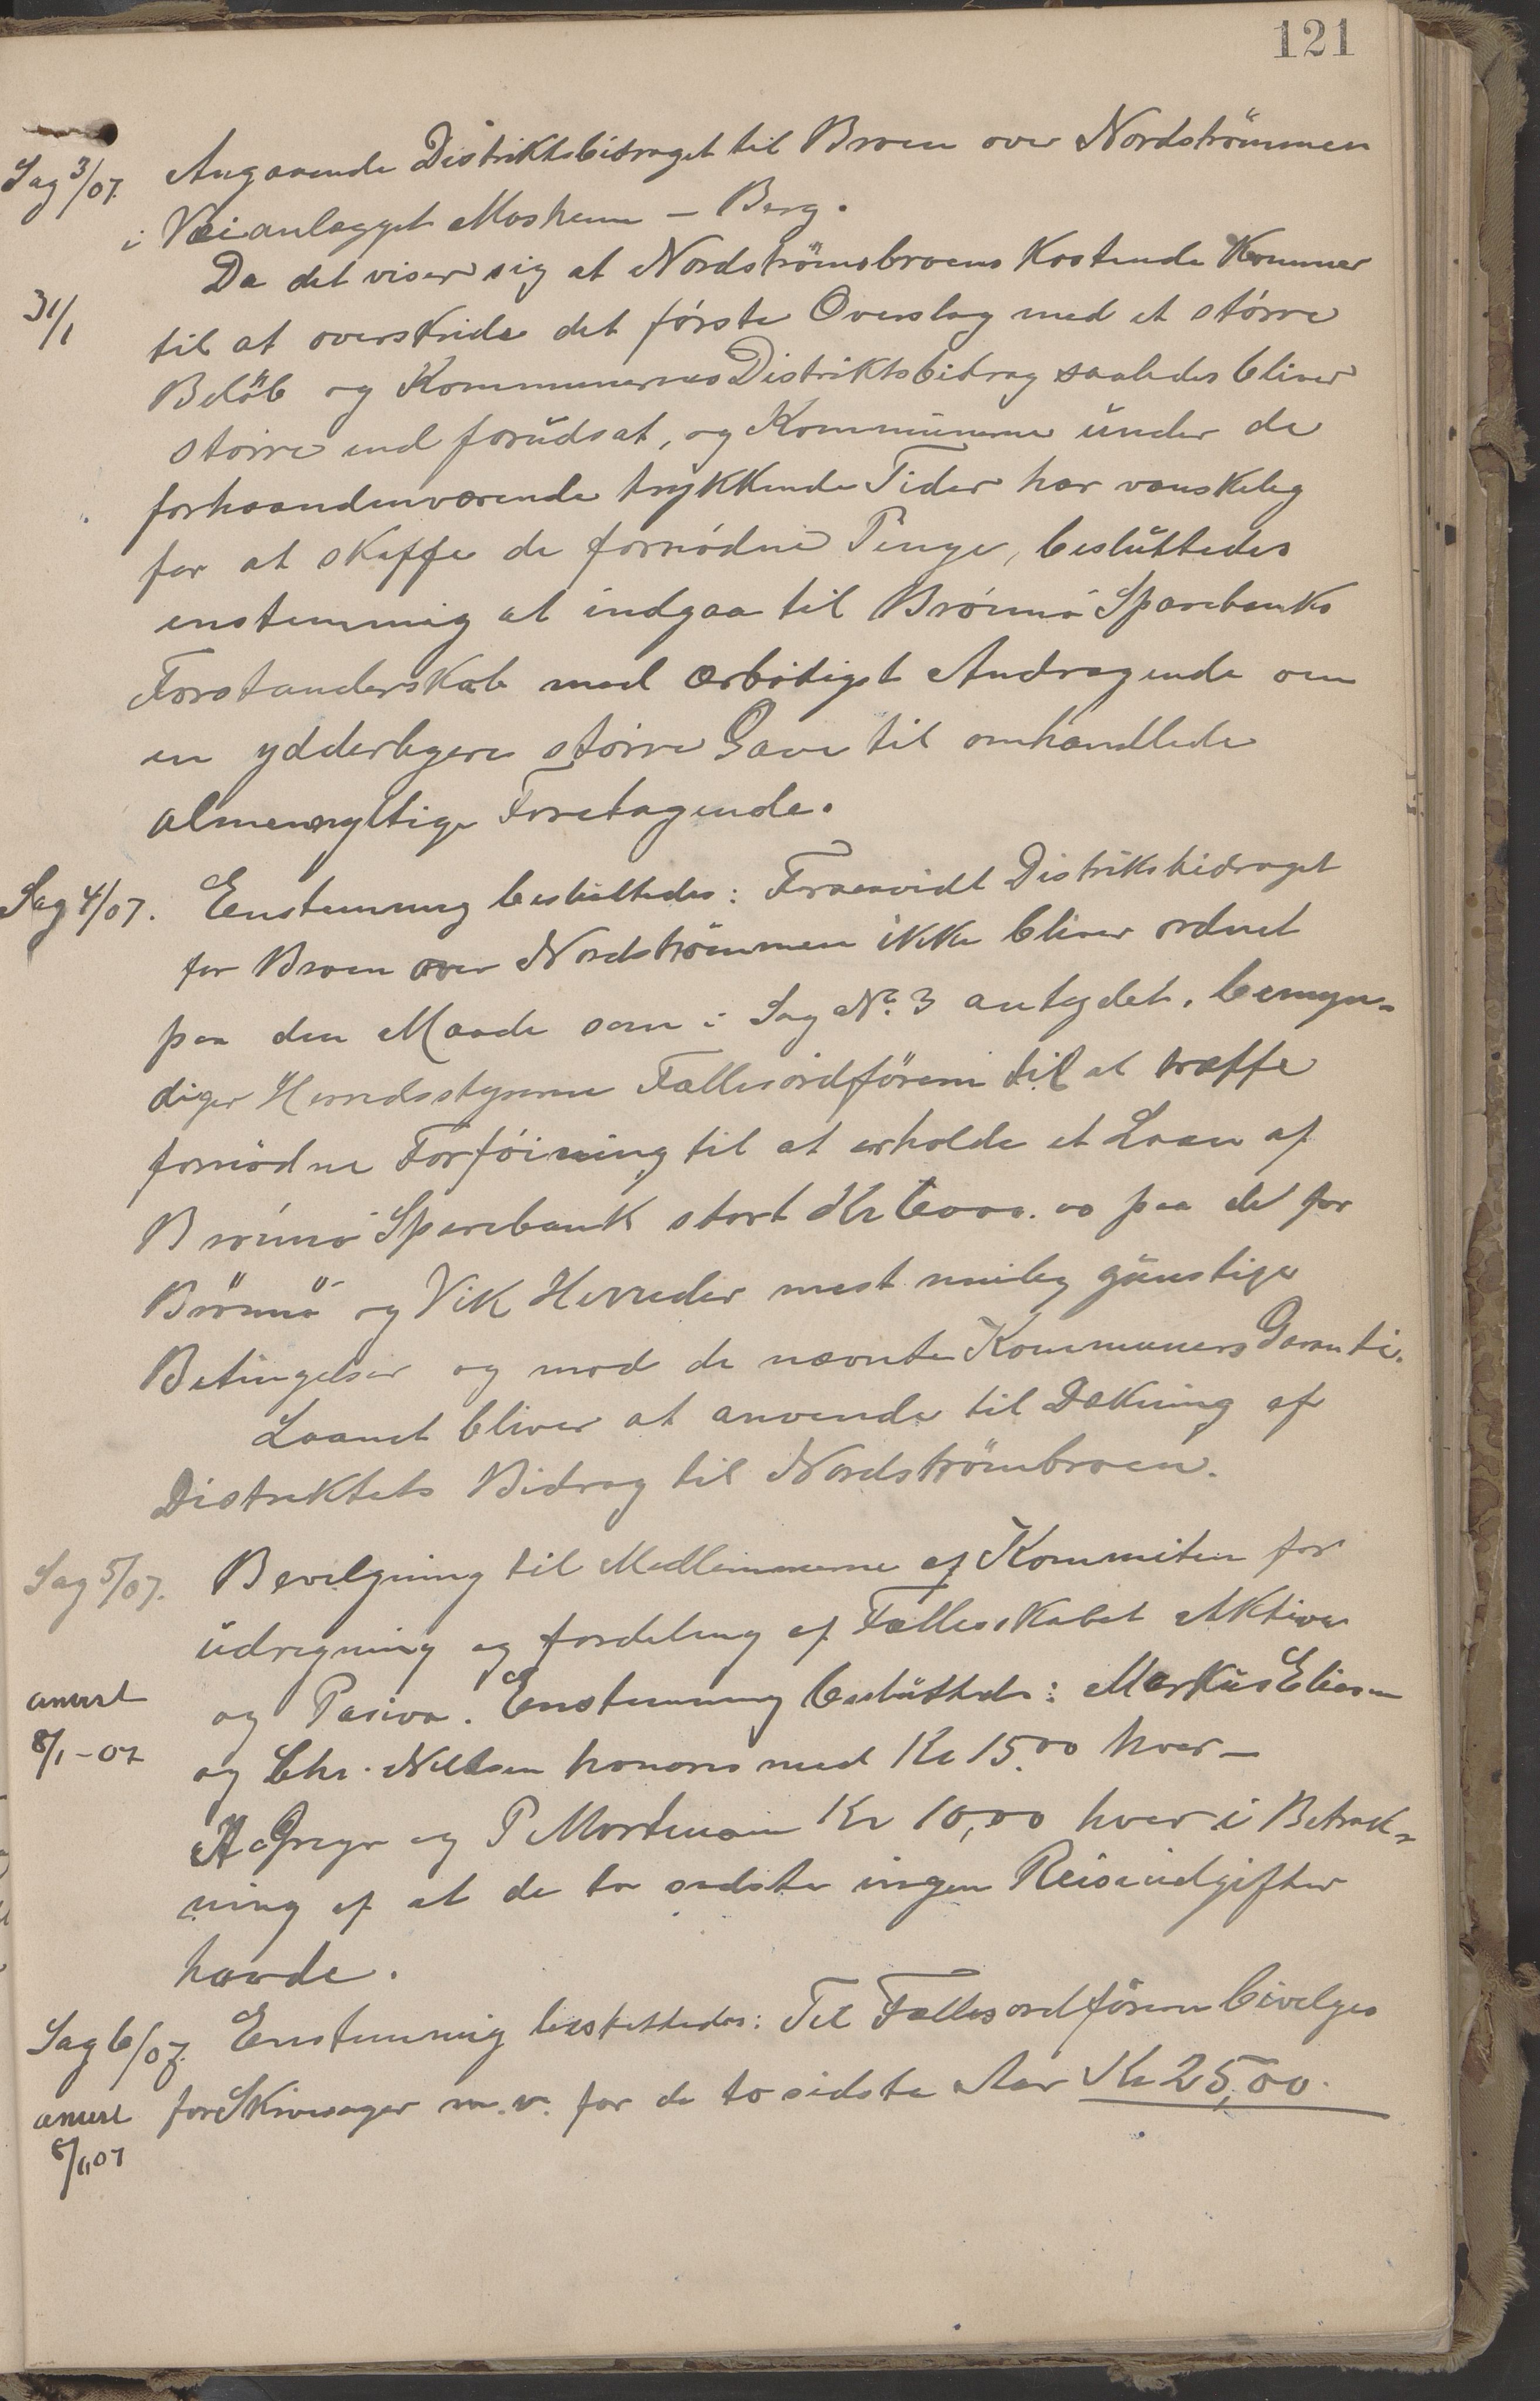 121
Sag 3/07. Angaaende Distriktsbidraget til Broen over Nordströmmen
i Veianlægget Mosheim - Berg.
Da det viser sig at Nordströmsbroens Kostende Kommer
31/1 til at overskride det förste Overslag med et större
Belöb og Kommunernes Distriktsbidrag saaledes bliver
större end forudsat, og Kommunerne under de
forhaandenværende trykkende Tider har vanskelig
for at skaffe de fornödne Penge, besluttedes
enstemmig at indgaa til Brönnö Sparebanks
Forstanderskab med ærbödigst Andragende om
en ydderligere större Gave til omhandlede
almennyttige Foretagende.
Sag 4/07. Enstemmig besluttedes: Forsaavidt Distriksbidraget
for Broen over Nordströmmen ikke bliver ordnet
paa den Maade som i Sag No. 3 antydet, bemyn-
diger Herredsstyrerne Fællesordföreren til at træffe
fornödne Forföining til at erholde et Laan af
Brönnö Sparebank stort Kr 6000.00 paa de for
Brönnö og Vik Herreder mest mulig gunstige
Betingelser og mod de nævnte Kommuners Garanti.
Laanet bliver at anvende til Dækning af
Distriktets Bidrag til Nordströmbroen.
Sag 5/07. Bevilgning til Medlemmerne af Kommiten for
udregning og fordeling af Fællesskabet Aktiva
anvist og Pasiva. Enstemmig besluttedes: Markus Eliasen
8/1-07 og Chr. Nielsen honores med Kr 15.00 hver -
A Greger og P Mortensen Kr 10,00 hver i Betrak-
ning af at de to sidste ingen Reiseudgifter
havde.
Sag 6/07. Enstemmig besluttedes: Til Fællesordföreren bevilges
anvist for Skrivesager m.v. for de to sidste Aar Kr 25,00.
8/1 07